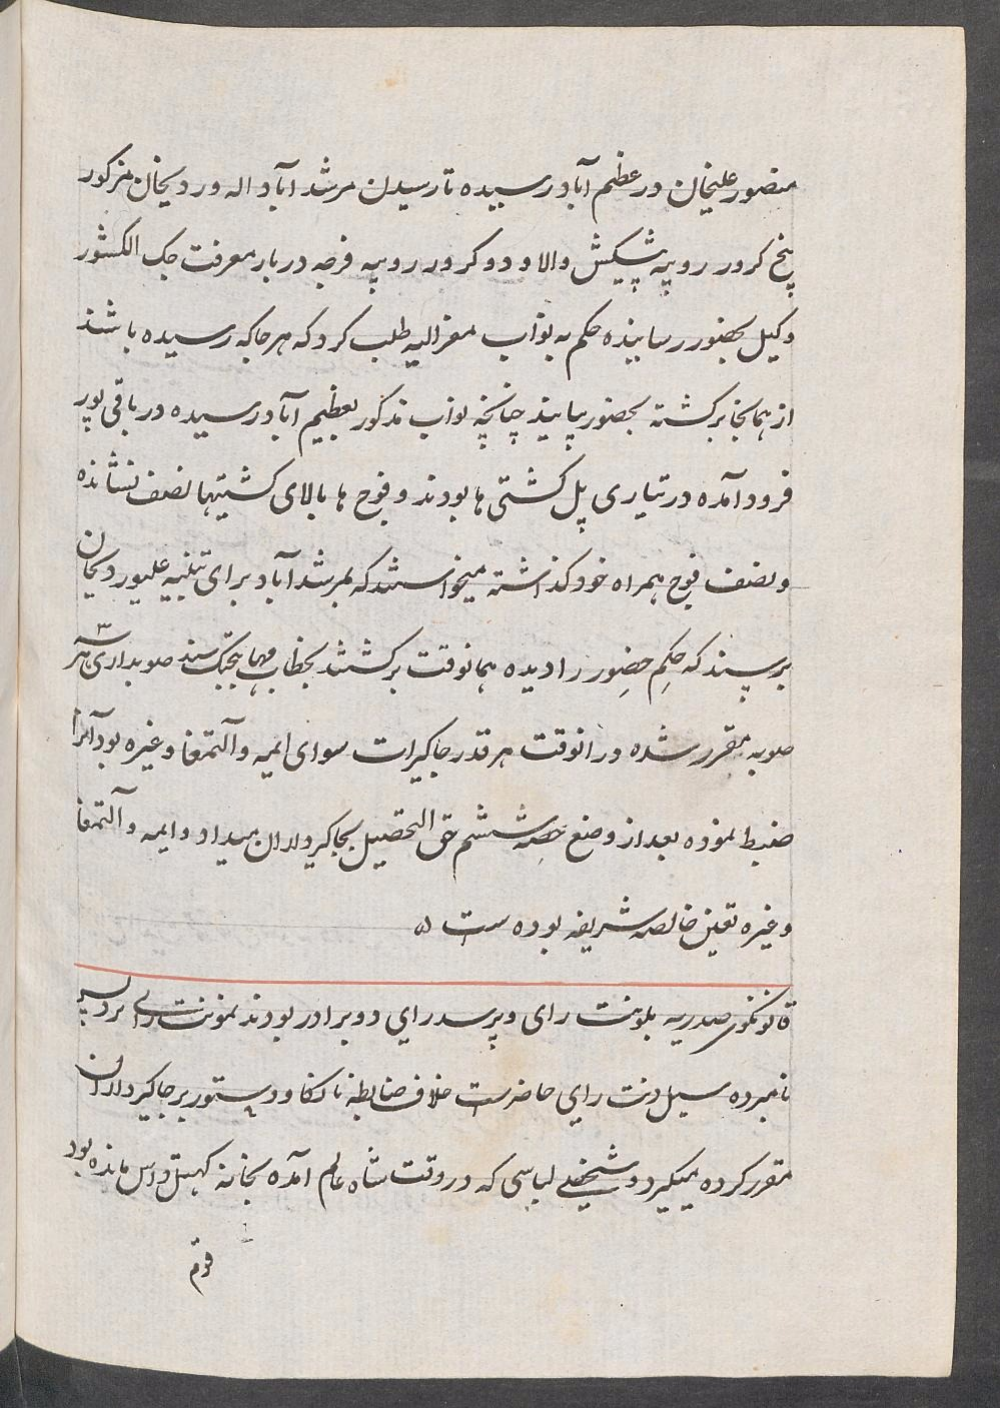 منصور علیخان در عظیم آباد رسیده تا رسیدن مرشد آباد اله وردیخان مزکور
پنج کرور روپیه پیشکش والا و دو کرور روپیه قرضه دربار معرفت جک الکشور
وکیل بحضور رسانیده حکم به نواب معزالیه طلب کرد که هر جا که رسیده باشند
از همانجا برکشته بحضور بیایند چنانچه نواب مذکور بعظیم آباد رسیده در باقی پور
فرود آمده در تیاری پل کشتی ها بودند و فوج ها بالای کشتیها نصف نشانده
و نصف فوج همراه خود کذاشته میخواستند که بمرشد آباد برای تنبیه علیوردیخان
برسند که حکم حضور را دیده همانوقت برکشتند بخطاب مهابتجنک سند صوبداری هر ۳
صوبه مقرر شده در انوقت هر قدر جاکیرات سوای ایمه و آلتمغا و غیره بود آنرا
ضبط نموده بعد از وضع حصه ششم حق التحصیل بجاکیرداران میداد و ایمه و آلتمغا
و غیره تعین خالصه شریفه بوده است ۵
قانونکوی صدریه بلونت رای و پرسد رای دو برادر بودند نمونت رای پسر
نامبرده سیل ونت رای حاضرست خلاف ضابطه نانکار و دستور بر جاکیرداران
مقرر کرده میکیرد و شخصی لباسی که در وقت شاه عالم آمده بخانه کهیتو داس مانده بود